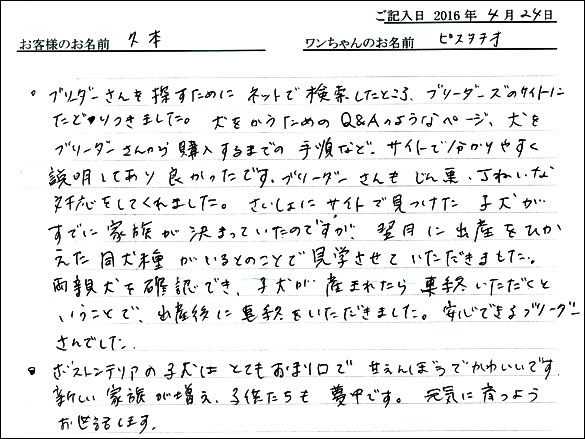 ご記入日 2016 年 4 月 24日
お客様のお名前 久本 ワンちゃんのお名前 ピスタチオ
。ブリーダーさんを探すために ネットで検索したところ、ブリーダーズのサイトに
たどりつきました。犬をかうための Q&Aのようなページ、犬を
ブリーダーさんから購入するまでの 手順など、サイトで分かりやすく
説明してあり 良かったです。ブリーダーさんも じん速、ていねいな
対応をしてくれました。さいしょに サイトで見つけた 子犬が
すでに 家族が 決まっていたのですが、翌月に 出産を ひか
えた 同犬種が いるとのことで 見学させて いただきました。
両親犬を 確認でき、子犬が 産まれたら 連絡いただくと
いうことで、出産後に 連絡をいただきました。安心できるブリーダー
さんでした。
。ボストンテリアの 子犬は とても おりこうで 甘えんぼうで かわいいです。
新しい 家族が増え、子供たちも 夢中です。元気に 育つよう
お世話します。